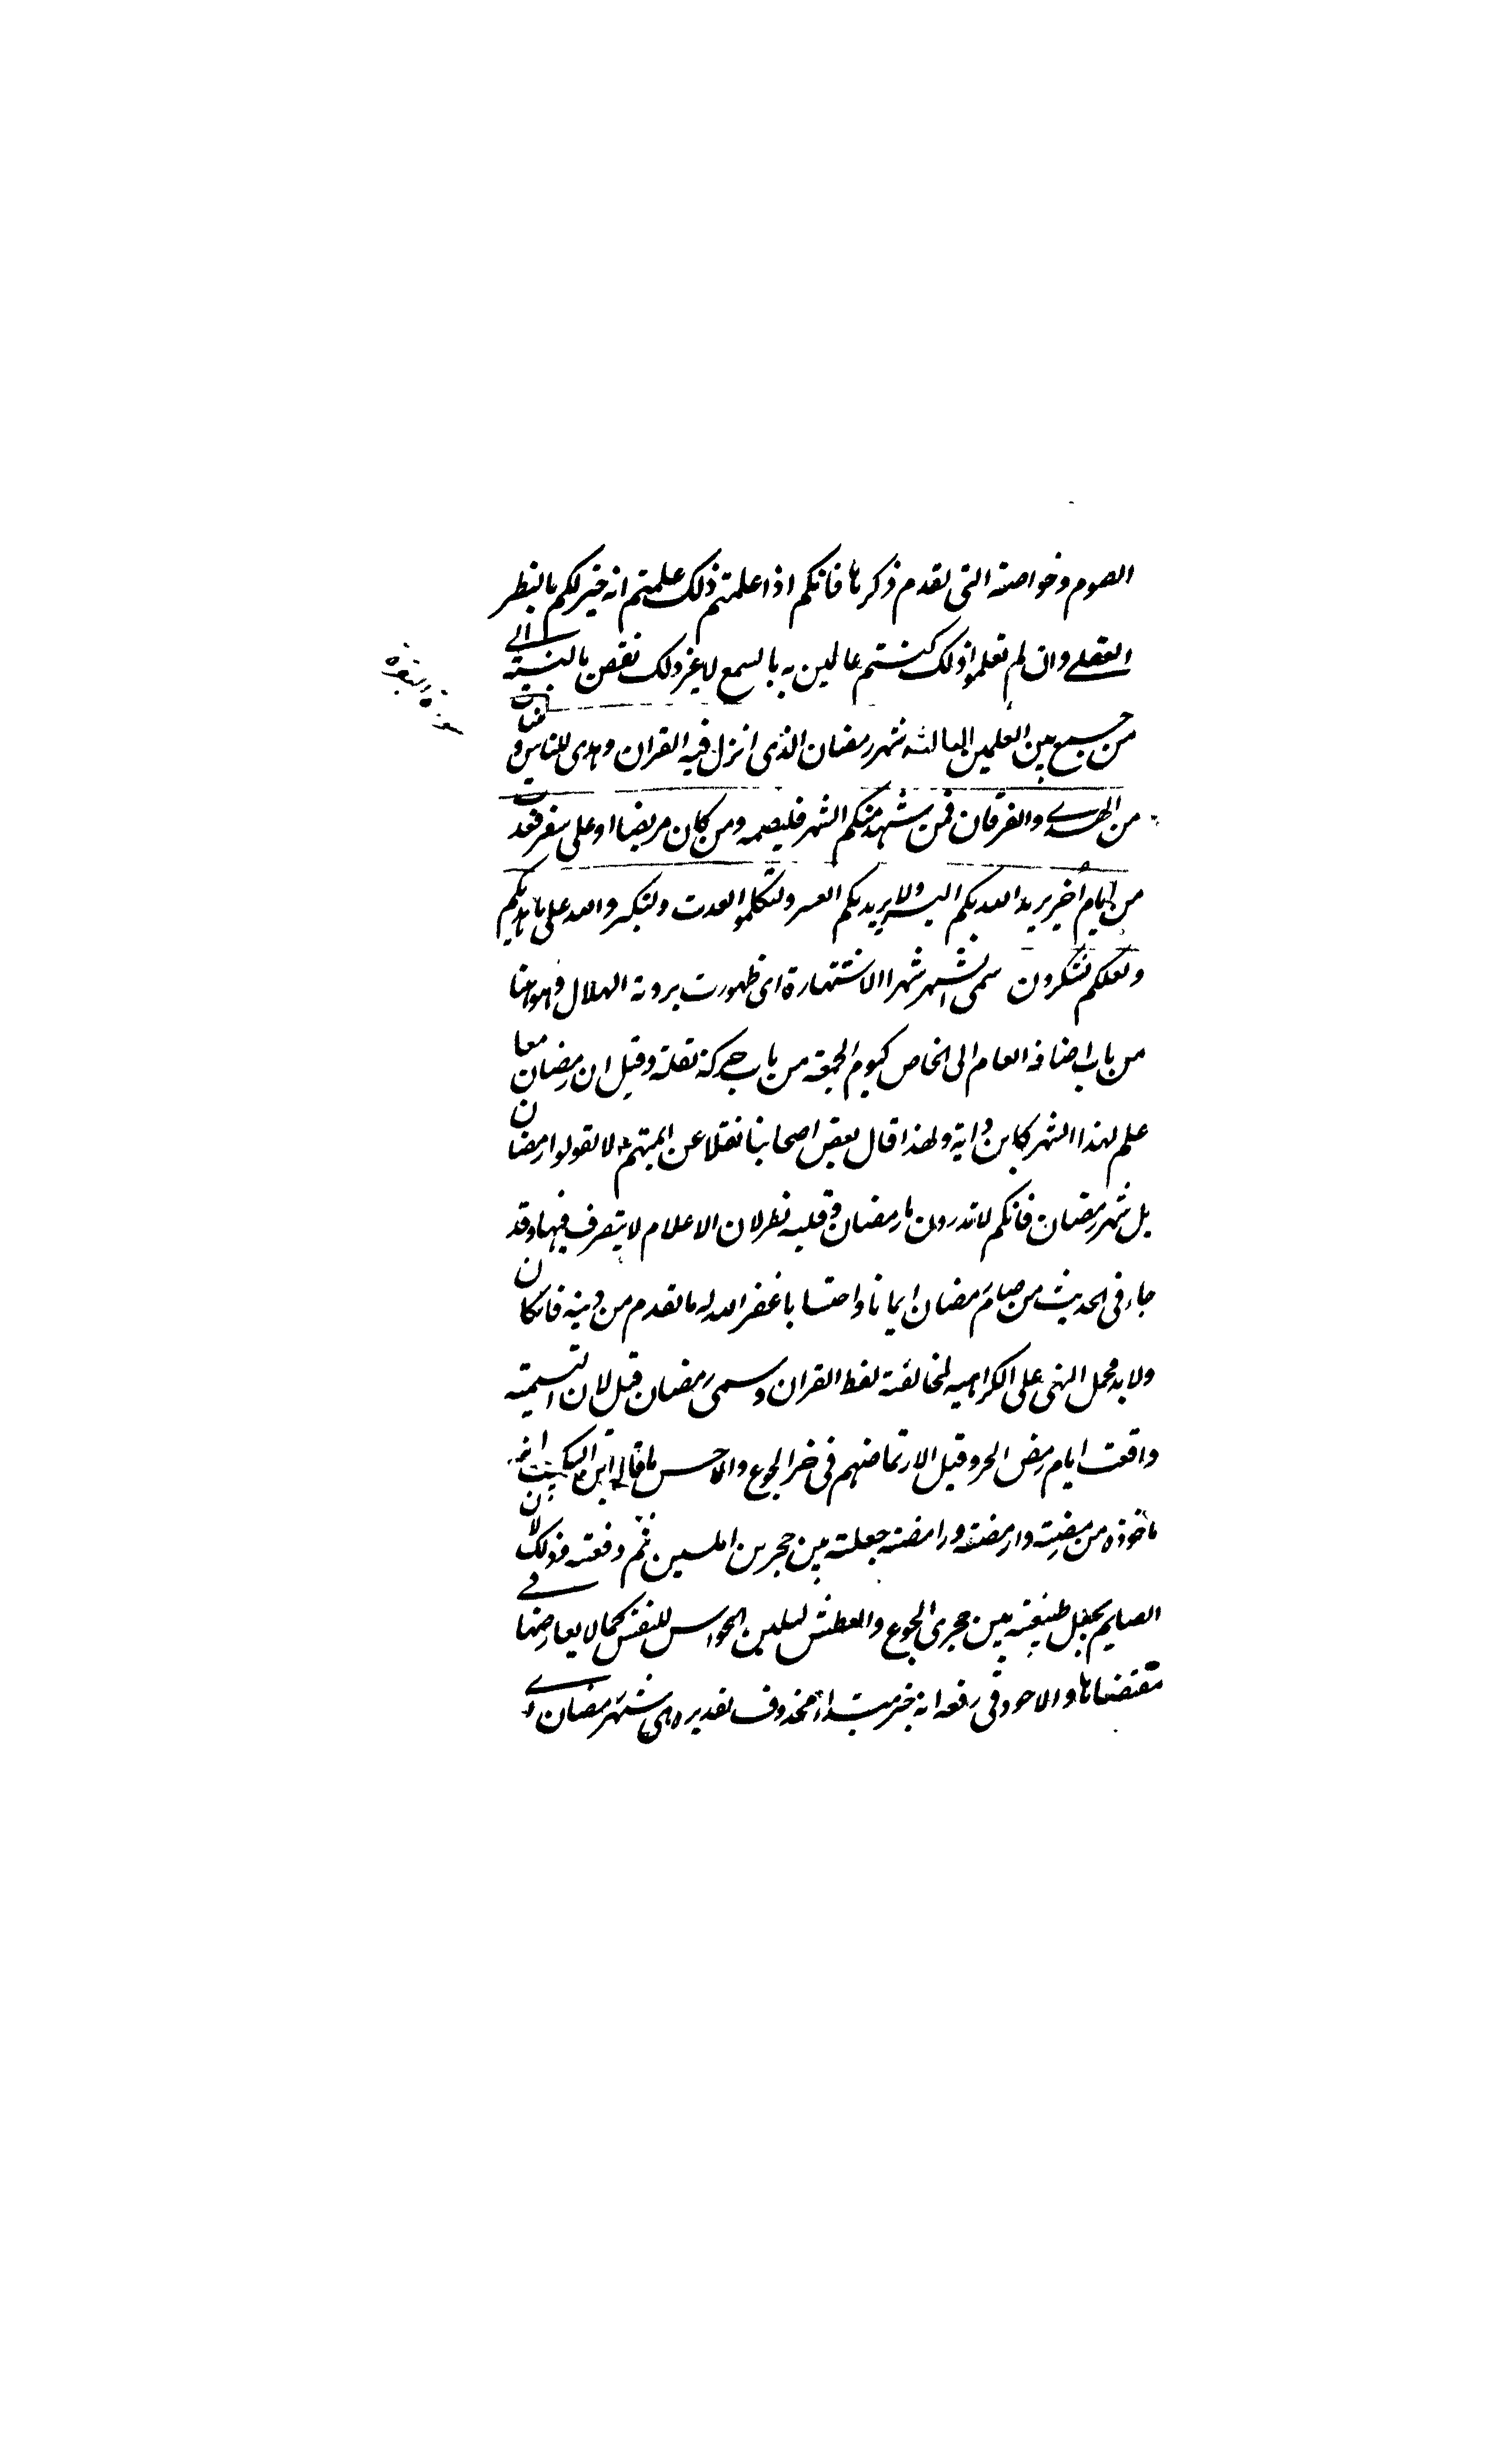 الصوم وخواصه التى تقدم ذكرها فانكم اذا علمتم ذلك علمتم انه خير لكم بالنظر
العقلى وان لم تعلموا ذلك كنتم عالمين به بالسمع لا غير ذلك نقص بالنسبة الى
من جمع بين العلمين الثالثه شهر رمضان الذى انزل فيه القران وهدى للناس وبينات
من الهدى والفرقان فمن شهد منكم الشهر فليصمه ومن كان مريضا او على سفر فعدت
من ايام اخر يريد الله بكم اليسر ولا يريد بكم العسر ولتكلموا العدت ولتكبروا الله على ما هديكم
ولعلكم تشكرون سمى الشهر شهرا الاشتهارة اى ظهورت برونة الهلال وهو ههنا
من باب اضافه العام الى الخاص كيوم الجمعة من باب حركة نقلة وقيل ان رمضان معا
علم لهذا الشهر كابن داية ولهذا قال بعض اصحابنا نقلا عن ائمتهم لا تقولوا رمضان
بل شهر رمضان فانكم لا تدرون ما رمضان وقلبه نظر لان الاعلام لا يتصرف فيها وقد
جاء فى الحديث من صام رمضان ايمانا واحتسابا غفر الله له ما تقدم من ذنبه فان كان
ولا بد محمل النهى على الكراهيه لمخالفة لفظ القران وسمى رمضان قيل لان التسمية
واقعت ايام رمض الحر وقيل الارتماضهم فى حر الجوع والاحسن ما قاله ابن السكيت انه
ماخوذه من رمضته وارمضته ورامضته جعلته بين حجرين املسين ثم دفعته فذلك لان
الصايم يجعل طبيعته بين حجرى الجوع والعطش ليلين الحواس للنفس كمالا يعارضها فى
مقتضاها والاجود فى رفعه انه خبر مبتداء محذوف تقديره هى شهر رمضان اى